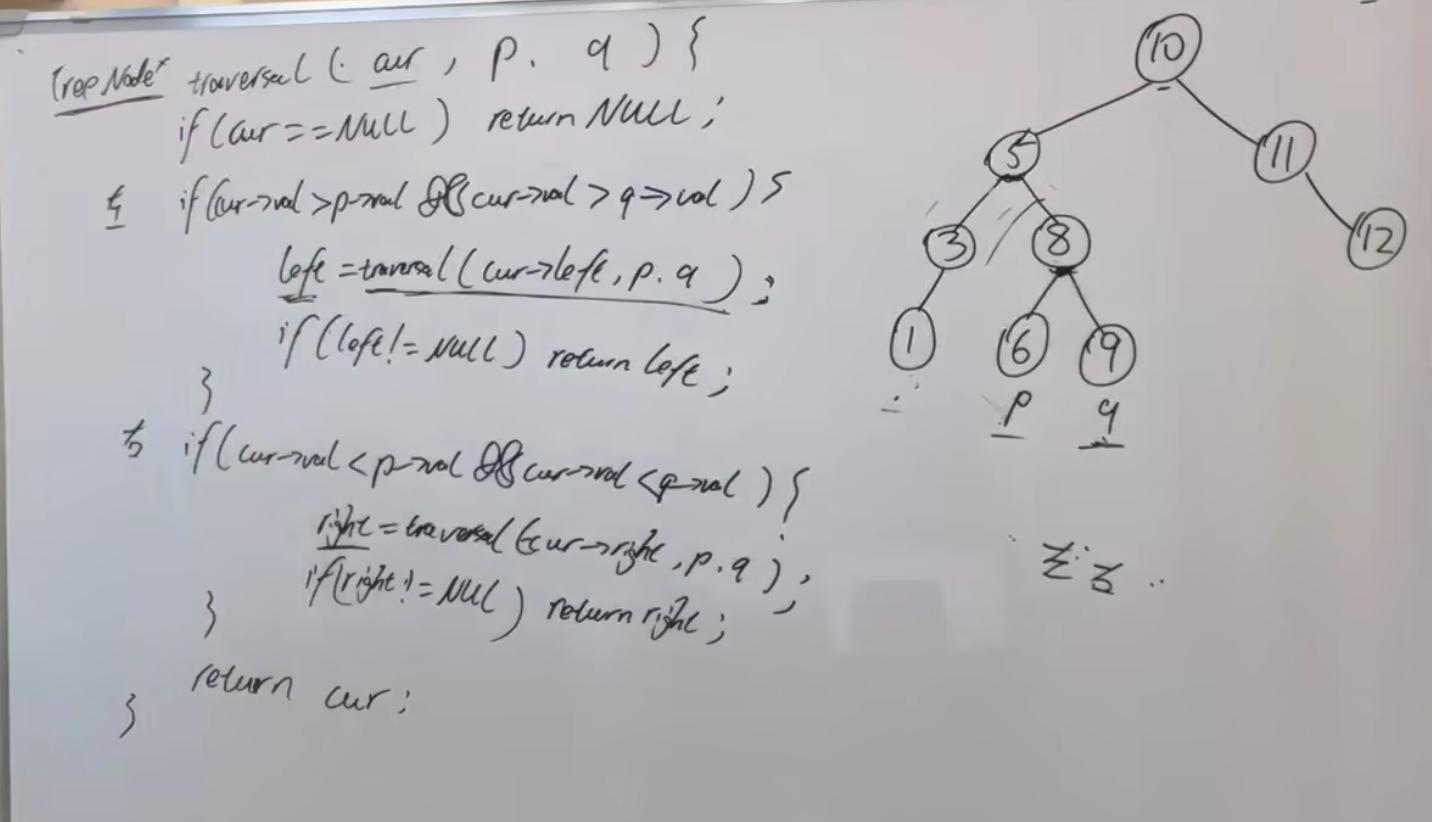 TreeNode* traversal(cur, p, q) {
if(cur==NULL) return NULL;
左 if(cur->val>p->val && cur->val>q->val){
left=traversal(cur->left, p, q);
if(left!=NULL) return left;
}
右 if(cur->val<p->val && cur->val<q->val){
right=traversal(cur->right, p, q);
if(right!=NULL) return right;
}
return cur;
}
10
5 11
3 8 12
1 6 9
p q
左右